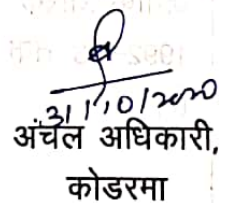 31/10/2020
अंचल अधिकारी,
कोडरमा